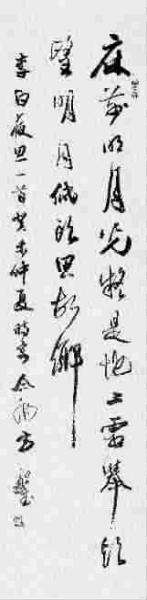 床前明月光疑是地上霜舉頭
望明月低頭思故鄉
李白夜思一首癸未仲夏